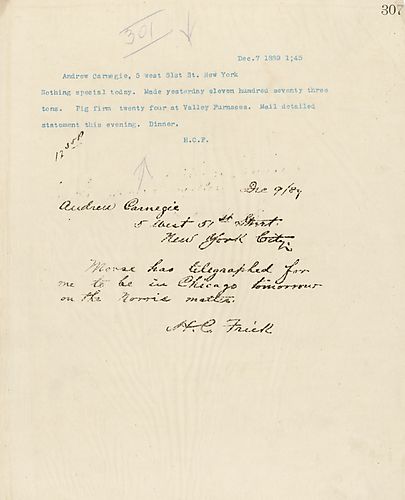 307
301
Dec.7 1889 1;45
Andrew Carnegie, 5 west 51st St. New York
Nothing special today. Made yesterday eleven hundred seventy three
tons. Pig firm twenty four at Valley Furnaces. Mail detailed
statement this evening. Dinner.
H.C.F.
Dec 9/89
Andrew Carnegie
5 West 51st Street.
New York City
Morse has telegraphed for
me to be in Chicago tomorrow
on the Norris matter.
H. C. Frick